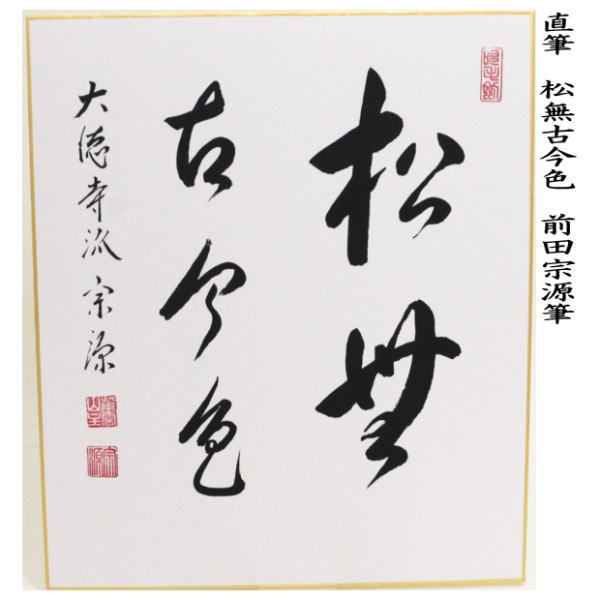 直筆 松無古今色 前田宗源筆
松無
古今色
大徳寺派 宗源